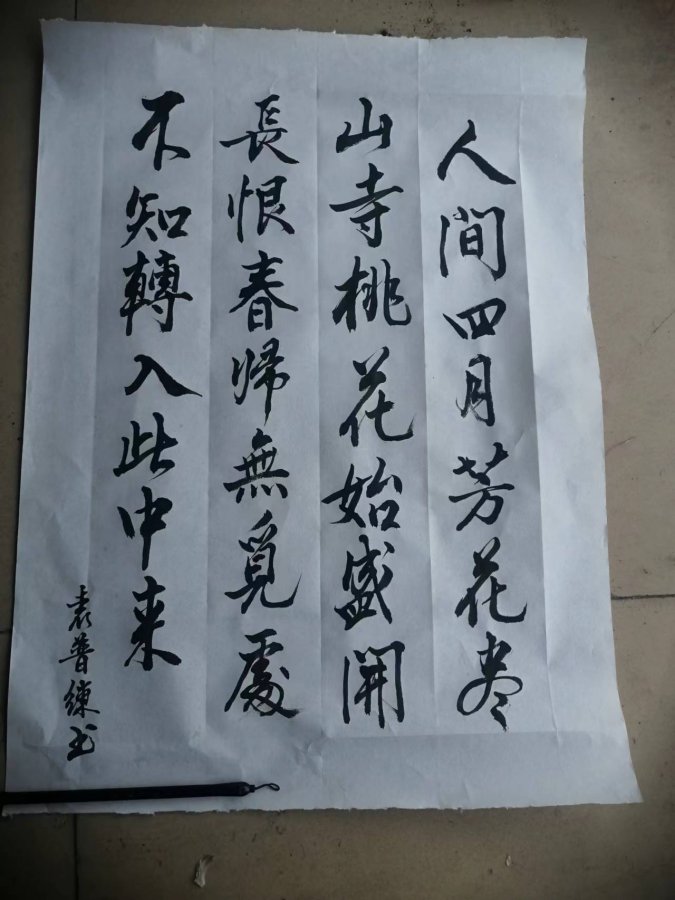 人間四月芳花尽
山寺桃花始盛開
長恨春帰無覓處
不知轉入此中来
袁普練书